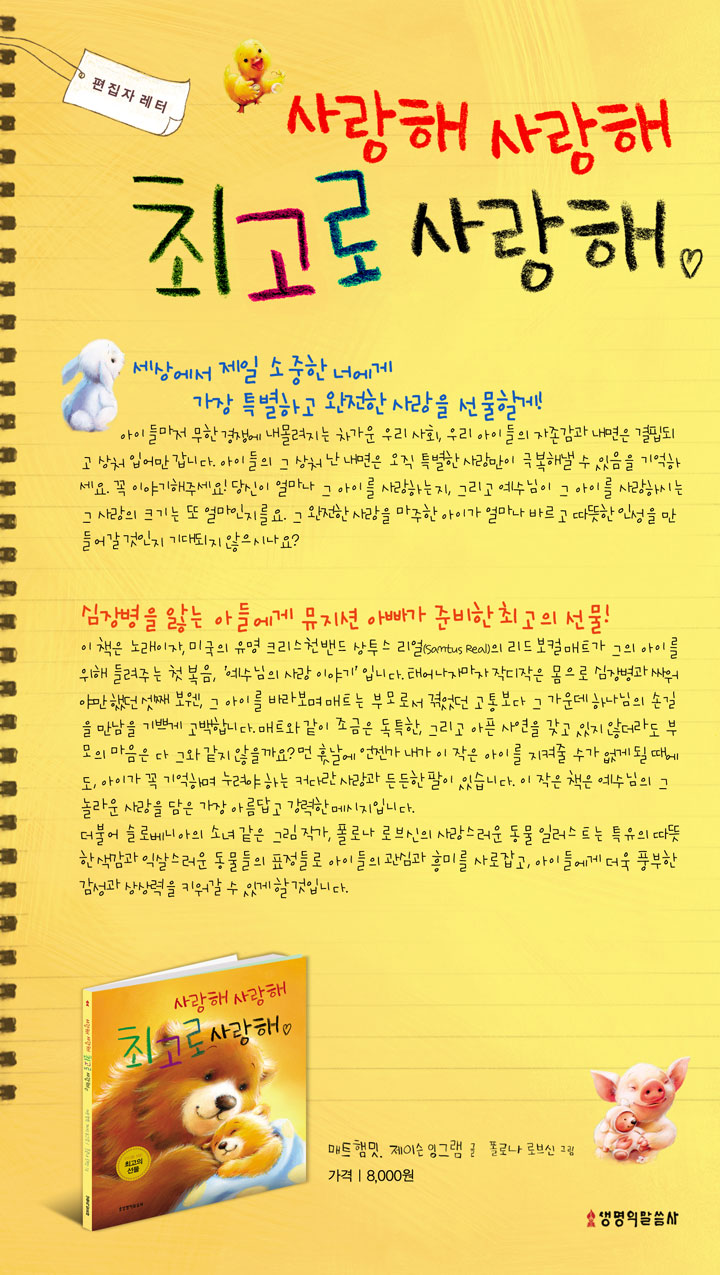 편집자 레터
사랑해 사랑해
최고로 사랑해
세상에서 제일 소중한 너에게
가장 특별하고 완전한 사랑을 선물할게!
아이들마저 무한경쟁에 내몰려지는 차가운 우리 사회, 우리 아이들의 자존감과 내면은 결핍되
고 상처 입어만 갑니다. 아이들의 그 상처 난 내면은 오직 특별한 사랑만이 극복해낼 수 있음을 기억하
세요. 꼭 이야기해주세요! 당신이 얼마나 그 아이를 사랑하는지, 그리고 예수님이 그 아이를 사랑하시는
그 사랑의 크기는 또 얼마인지를요. 그 완전한 사랑을 마주한 아이가 얼마나 바르고 따뜻한 인성을 만
들어갈 것인지 기대되지 않으시나요?
심장병을 앓는 아들에게 뮤지션 아빠가 준비한 최고의 선물!
이 책은 노래이자, 미국의 유명 크리스천밴드 상투스 리얼(Samtus Real)의 리드 보컬 매트가 그의 아이를
위해 들려주는 첫 복음, '예수님의 사랑 이야기' 입니다. 태어나자마자 작디작은 몸으로 심장병과 싸워
야만 했던 셋째 보웬, 그 아이를 바라보며 매트는 부모로서 겪었던 고통보다 그 가운데 하나님의 손길
을 만남을 기쁘게 고백합니다. 매트와 같이 조금은 독특한, 그리고 아픈 사연을 갖고 있지 않더라도 부
모의 마음은 다 그와 같지 않을까요? 먼 훗날에 언젠가 내가 이 작은 아이를 지켜줄 수가 없게 될 때에
도, 아이가 꼭 기억하며 누려야 하는 커다란 사랑과 든든한 팔이 있습니다. 이 작은 책은 예수님의 그
놀라운 사랑을 담은 가장 아름답고 강력한 메시지입니다.
더불어 슬로베니아의 소녀 같은 그림 작가, 폴로나 로브신의 사랑스러운 동물 일러스트는 특유의 따뜻
한 색감과 익살스러운 동물들의 표정들로 아이들의 관심과 흥미를 사로잡고, 아이들에게 더욱 풍부한
감성과 상상력을 키워갈 수 있게 할 것입니다.
사랑해 사랑해
최고로 사랑해
최고의
선물
생명의말씀사
매트 햄밋, 제이슨 잉그램 글 폴로나 로브신 그림
가격 | 8,000원
생명의말씀사